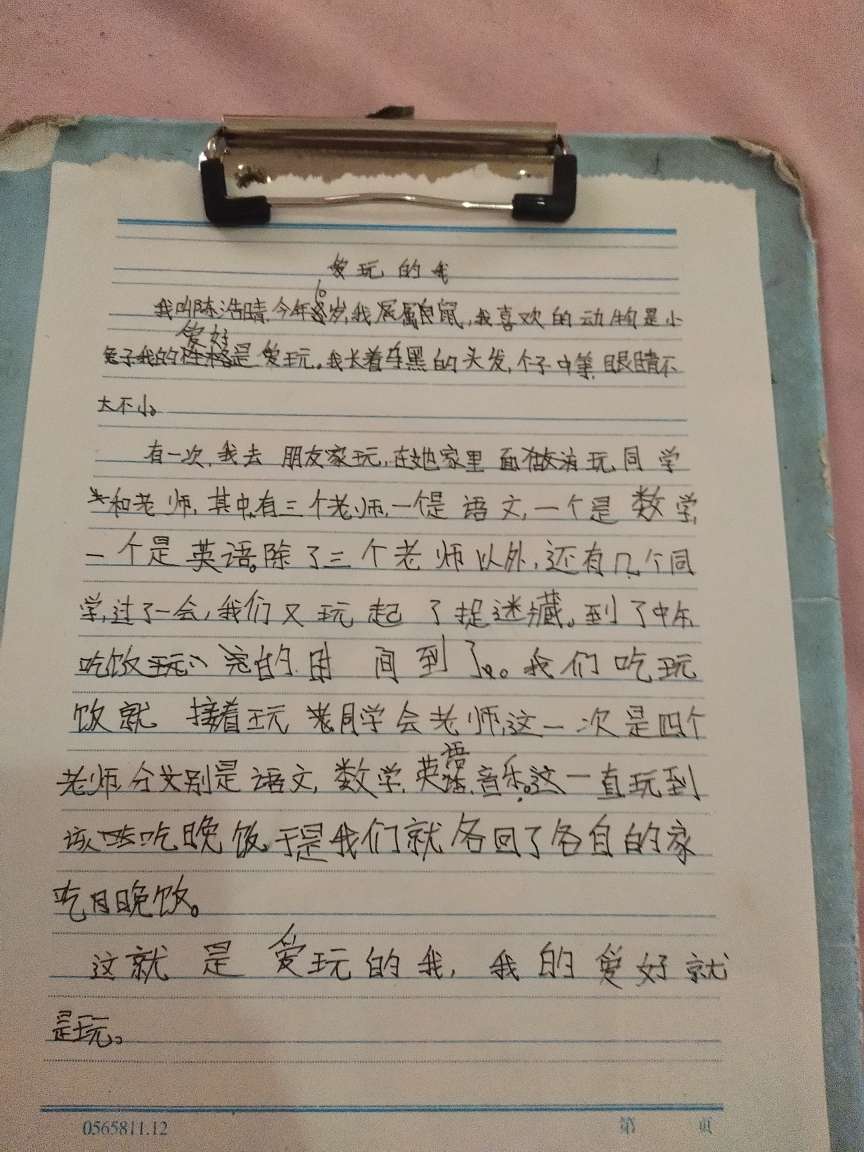 爱玩的我
我叫陈浩晴,今年10岁,我属鼠,我喜欢的动物是小
兔子我的爱好是爱玩。我长着乌黑的头发,个子中等,眼睛不
大不小。
有一次,我去朋友家玩,在她家里面做玩同学
和老师,其中有三个老师,一个是语文,一个是数学,
一个是英语。除了三个老师以外,还有几个同
学,过了一会,我们又玩起了捉迷藏。到了中午
吃饭的时间到了。我们吃玩
饭就接着玩同学会老师,这一次是四个
老师,分别是语文,数学,英语,音乐。这一直玩到
该吃晚饭,于是我们就各回了各自的家
吃晚饭。
这就是爱玩的我,我的爱好就
是玩。
0565811.12
第 页